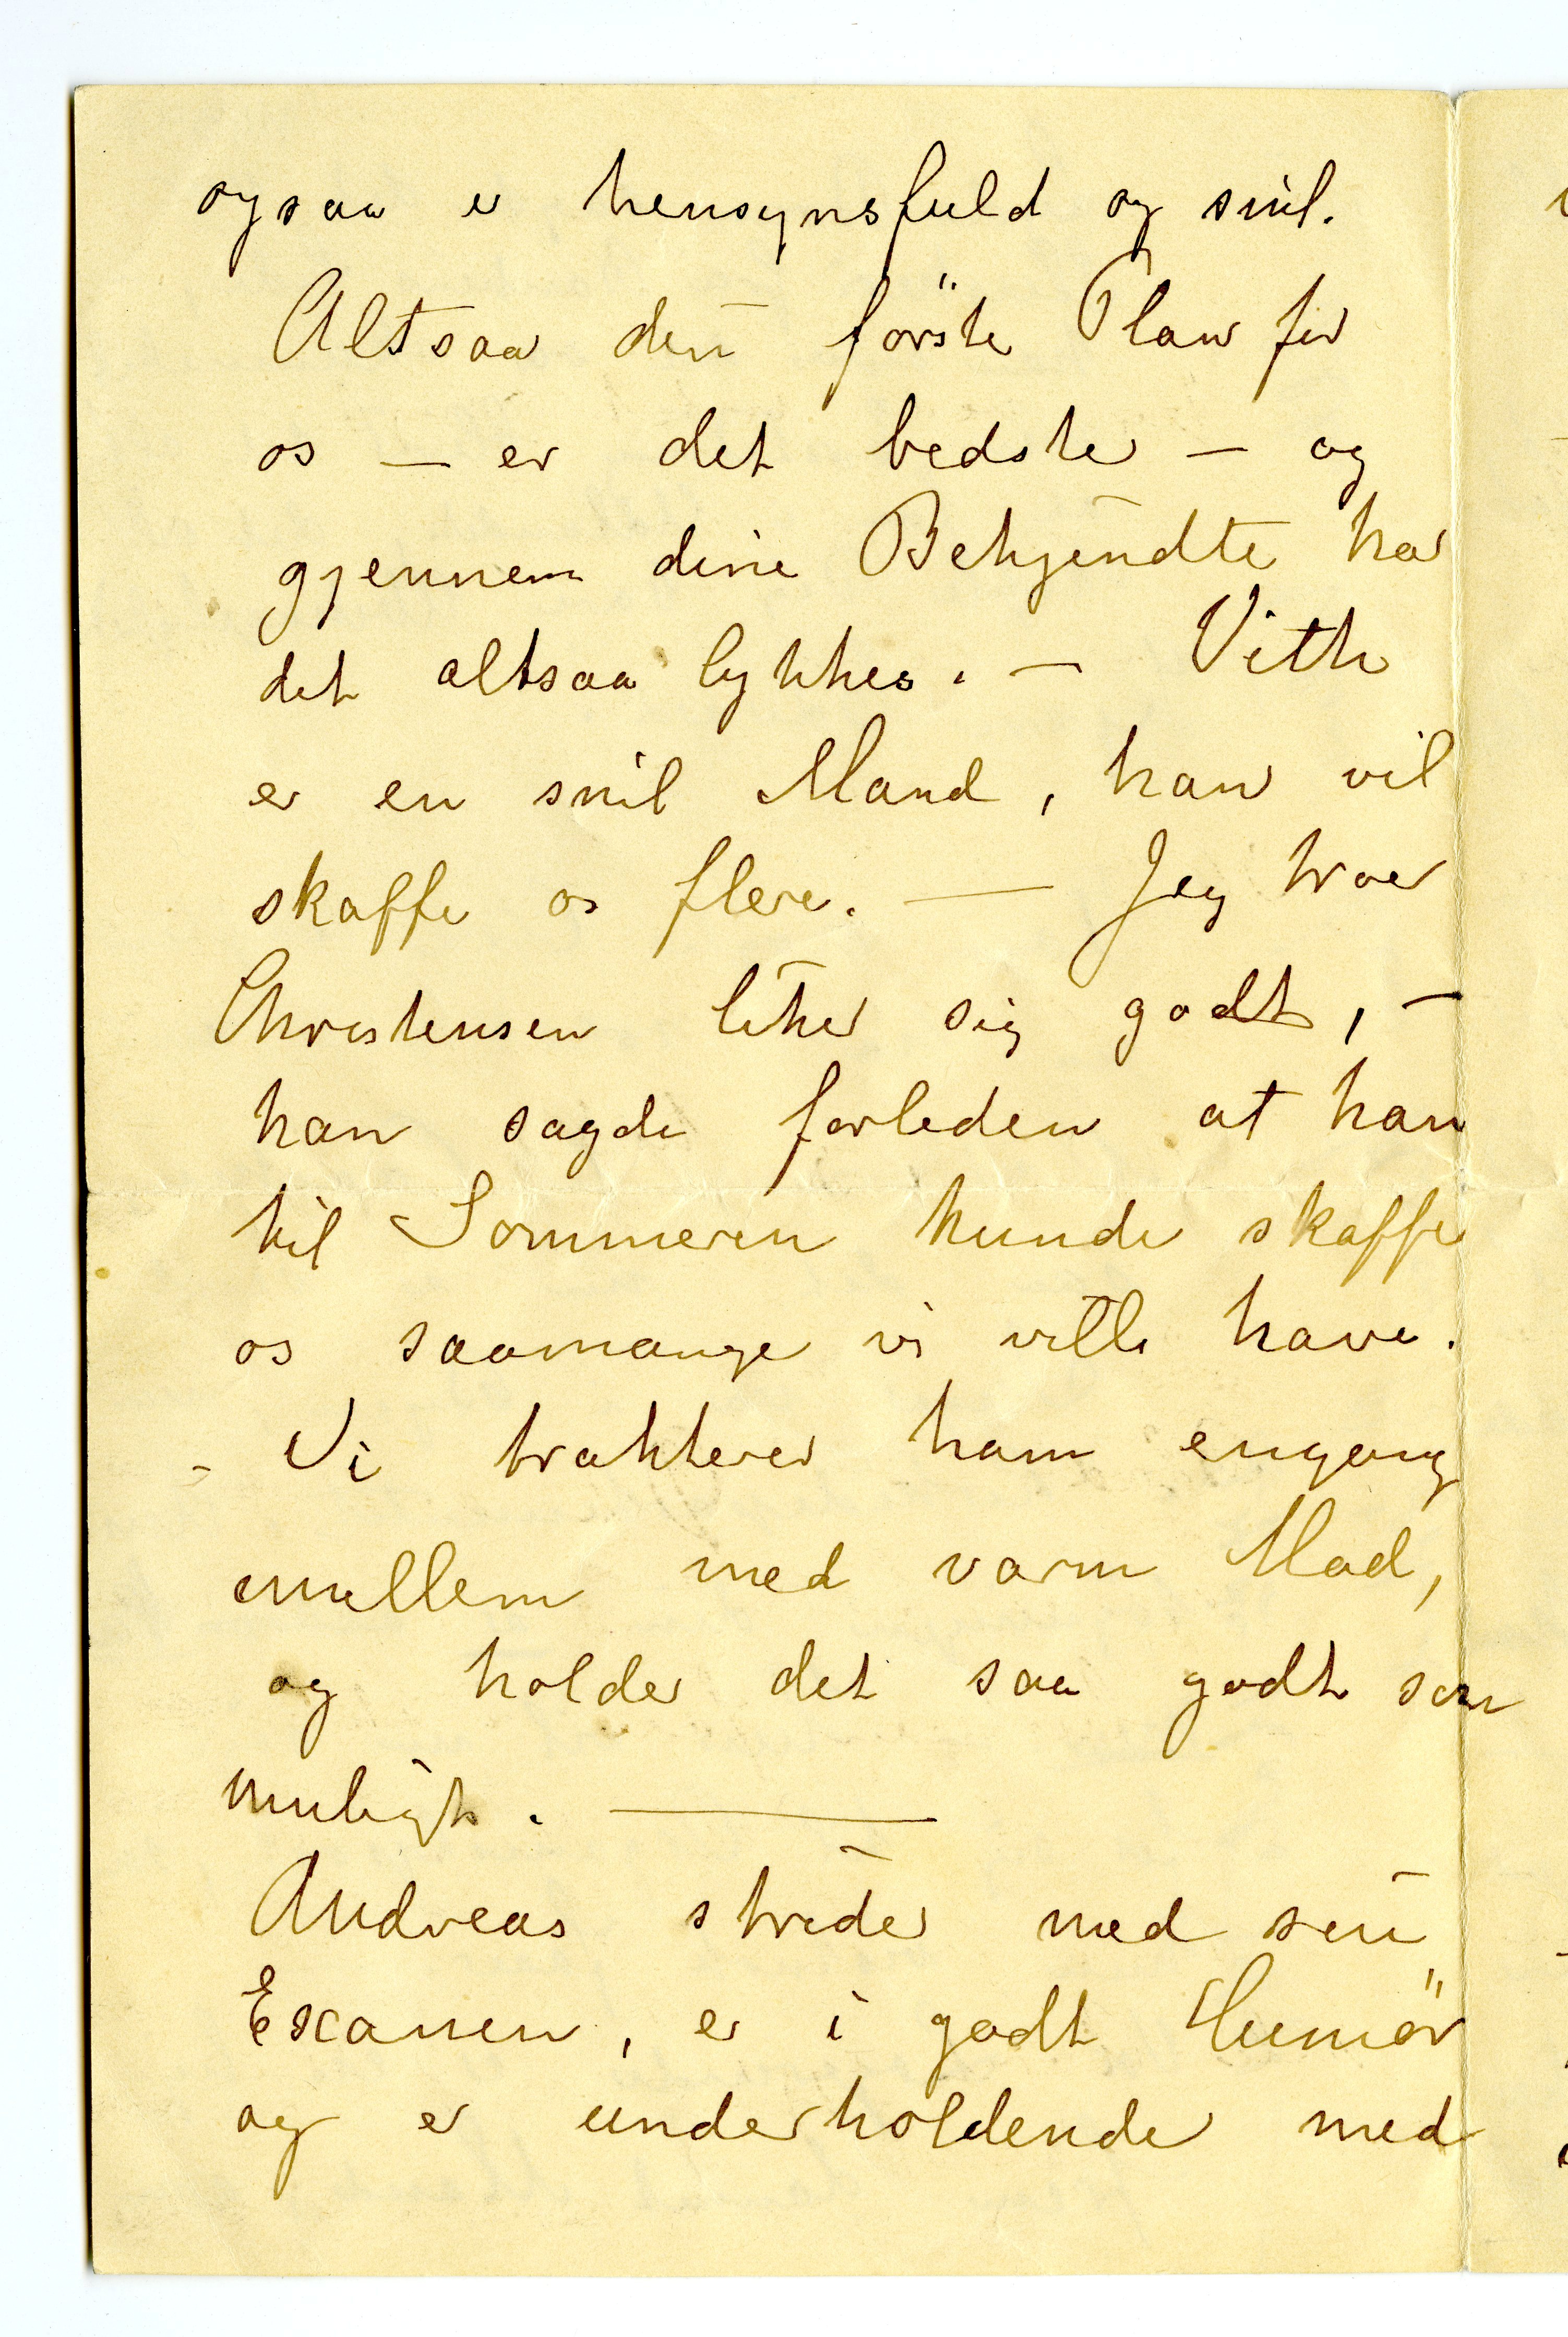 ogsaa er hensynsfuld og snil.
Altsaa den förste Plan for
os — er det bedste — og
gjennem dine Bekjendte har
det altsaa lykkes. — Vith
er en snil Mand, han vil
skaffe os flere. — Jeg troer
Christensen liker sig godt, —
han sagde forleden at han
til Sommeren kunde skaffe
os saamange vi ville have.
- Vi trakterer ham engang
imellem med varm Mad,
og holder det saa godt som
muligt. —
Andreas strider med sin
Examen, er i godt Humör
og er underholdende med